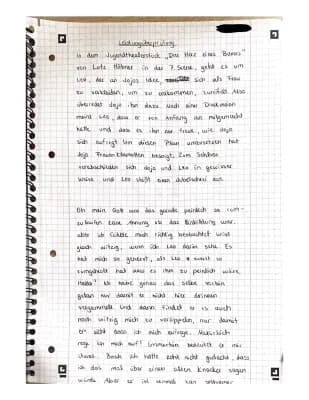 Leistungsüberprüfung
In dem Jugendtheaterstück „Das Herz eines Boxers"
von Lutz Hübner in der 7. Szene, geht es um
Leo, der an Jojos Idee, sich als Frau
zu verkleiden, um zu entkommen, zweifelt. Also
überredet Jojo ihn dazu. Nach einer Diskussion
meint Leo, dass er von Anfang an mitgemacht
hätte und, dass es ihn nur freut, wie Jojo
sich aufregt. Um diesen Plan umzusetzen hat
Jojo Frauenklamotten besorgt. Zum Schluss
verabschieden sich Jojo und Leo in gewisser
Weise und Leo stößt einen Jubelschrei aus.
Oh mein Gott war das gerade peinlich so rum-
zulaufen keine Ahnung ob das Einbildung war,
aber ich fühlte mich richtig beobachtet wird
auch witzig, wenn ich Leo darin sehe. Es
hat mich so genervt, als Leo
hat dass es ihm zu peinlich wäre.
Hallo? Ich habe genau das selbe vorhin
getan nur damit er nicht hier drinnen
vergammelt und dann findet er es auch
noch witzig mich zu verappeln, nur damit
er sieht dass ich mich aufrege. Natürlich
rege ich mich auf! Immerhin bedeutet er mir
etwas. Boah ich hätte echt nicht gedacht, dass
ich das mal über einen alten Knacker sagen
würde. Aber er ist